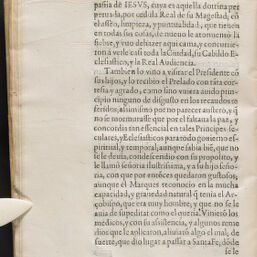 pañia de IESVS, cuya es aquella dotrina por
perpetua, por cedula Real de su Magestad, cõ
el asseo, limpieza, y puntualidad, que tienen
en todas sus cosas, de nueuo le atormentò la
fiebre, y vuo de hazer aqui cama, y concurrie-
ron à verle casi toda la Ciudad, su Cabildo Ec-
clesiastico, y la Real Audiencia.
Tambien lo vino a visitar el Presidente cõ
sus hijos, y lo recibio el Prelado con rara cor-
tesia, y agrado, como sino vuiera auido prin-
cipio ninguno de disgusto en los recaudos re-
feridos, assi mismo por no parecer austero, y q̃
no se murmurasse que por el faltaua la paz, y
concordia tan essencial en tales Principes se-
culares, y Eclesiasticos para todo gouierno es-
piritual, y temporal, aunque sabia biẽ, que no
se le deuia, condecendio con su proposito, y
le llamò señoria ilustrissima, y a su hijo seño-
ria, con que por entonces quedaron gustosos,
aunque el Marques reconocio en la mucha
capacidad, y grauedad natural q̃ tenia el Ar-
çobispo, que era muy hombre, y que no se le
auia de supeditar como el queria. Visitòlo los
medicos, y con su assistencia, y algunos reme-
dios que le aplicaron, aliuiaron algo el mal, de
suerte, que dio lugar a passar a Santa Fè, dõde
se le